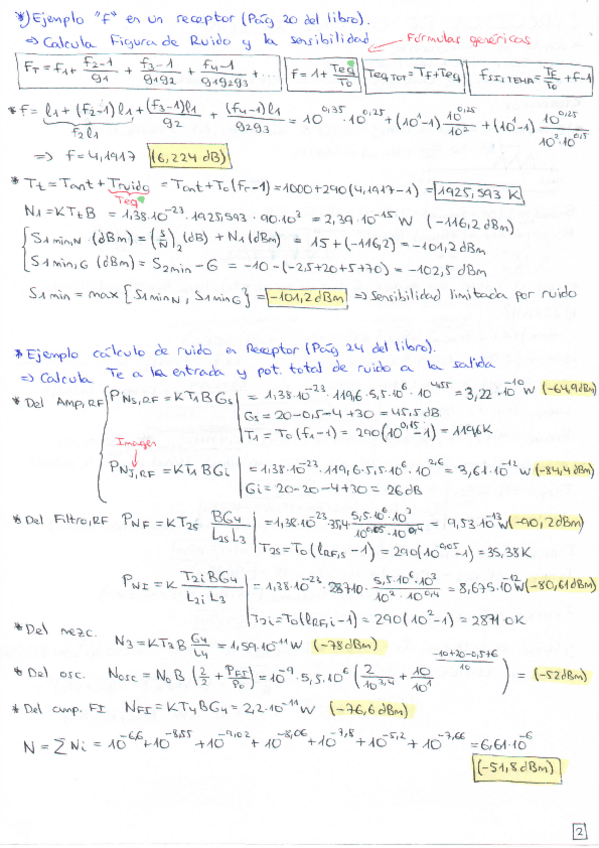 *) Ejemplo "f" en un receptor (Pág 20 del libro).
⇒ Calcula Figura de Ruido y la sensibilidad
Fórmulas genéricas
F_T = f1 + (f2-1)/g1 + (f3-1)/(g1g2) + (f4-1)/(g1g2g3) + ...
f = 1 + Teq/T0
Teq TOT = TF + Teq
fSISTEMA = TE/T0 + F-1
* f = l1 + (f2-1) l1 + (f3-1)l1/g2 + (f4-1) l1/(g2g3) = 10^0,35 · 10^0,25 + (10^1-1) 10^0,25/10^2 + (10^1-1) 10^0,25/(10^2·10^0,5)
f2l1
⇒ f = 4,1917 (6,224 dB)
* Tt = Tant + Truido = Tant + To (fr-1) = 1000 + 290 (4,1917-1) = 1925,593 K
Teq
N1 = KTtB = 1,38·10^-23 · 1925,593 · 90·10^3 = 2,39·10^-15 W (-116,2 dBm)
S1min,N (dBm) = (S/N)2 (dB) + N1 (dBm) = 15 + (-116,2) = -101,2 dBm
S1min,G (dBm) = S2min - G = -10 - (-2,5+20+5+70) = -102,5 dBm
S1min = max {S1minN, S1minG} = -101,2 dBm ⇒ Sensibilidad limitada por ruido
* Ejemplo cálculo de ruido en Receptor (Pág 24 del libro).
⇒ Calcula Te a la entrada y pot. total de ruido a la salida
* Del Amp,RF
PNS,RF = KT1BGs = 1,38·10^-23 · 119,6 · 5,5·10^6 · 10^4,55 = 3,22·10^-10 W (-64,9 dBm)
Gs = 20-0,5-4+30 = 45,5 dB
T1 = To (f1-1) = 290 (10^0,15-1) = 119,6 K
Imagen
PNJ,RF = KT1BGi = 1,38·10^-23 · 119,6 · 5,5·10^6 · 10^2,6 = 3,61·10^-12 W (-84,4 dBm)
Gi = 20-20-4+30 = 26 dB
* Del Filtro,RF PNF = KT2s BG4/(L2s L3) = 1,38·10^-23 · 35,4 · 5,5·10^6·10^3/(10^0,05·10^0,4) = 9,53·10^-13 W (-90,2 dBm)
T2s = To (lRF,s - 1) = 290 (10^0,05-1) = 35,38 K
PNI = K T2i BG4/(L2i L3) = 1,38·10^-23 · 28710 · 5,5·10^6·10^3/(10^2·10^0,4) = 8,675·10^-12 W (-80,61 dBm)
T2i = To (lRF,i - 1) = 290 (10^2-1) = 28710 K
* Del mezc.
N3 = KT3B G4/L4 = 1,59·10^-11 W (-78 dBm)
* Del osc. Nosc = NoB (2/2 + PFI/Po) = 10^-9 · 5,5·10^6 (2/10^3,4 + 10/10^1 ^(-10+20-0,5+6)/10) = (-52 dBm)
* Del amp. FI NFI = KT4BG4 = 2,2·10^-11 W (-76,6 dBm)
N = ΣNi = 10^-6,6 + 10^-8,55 + 10^-9,02 + 10^-8,06 + 10^-7,8 + 10^-5,2 + 10^-7,66 = 6,61·10^-6
(-51,8 dBm)
2